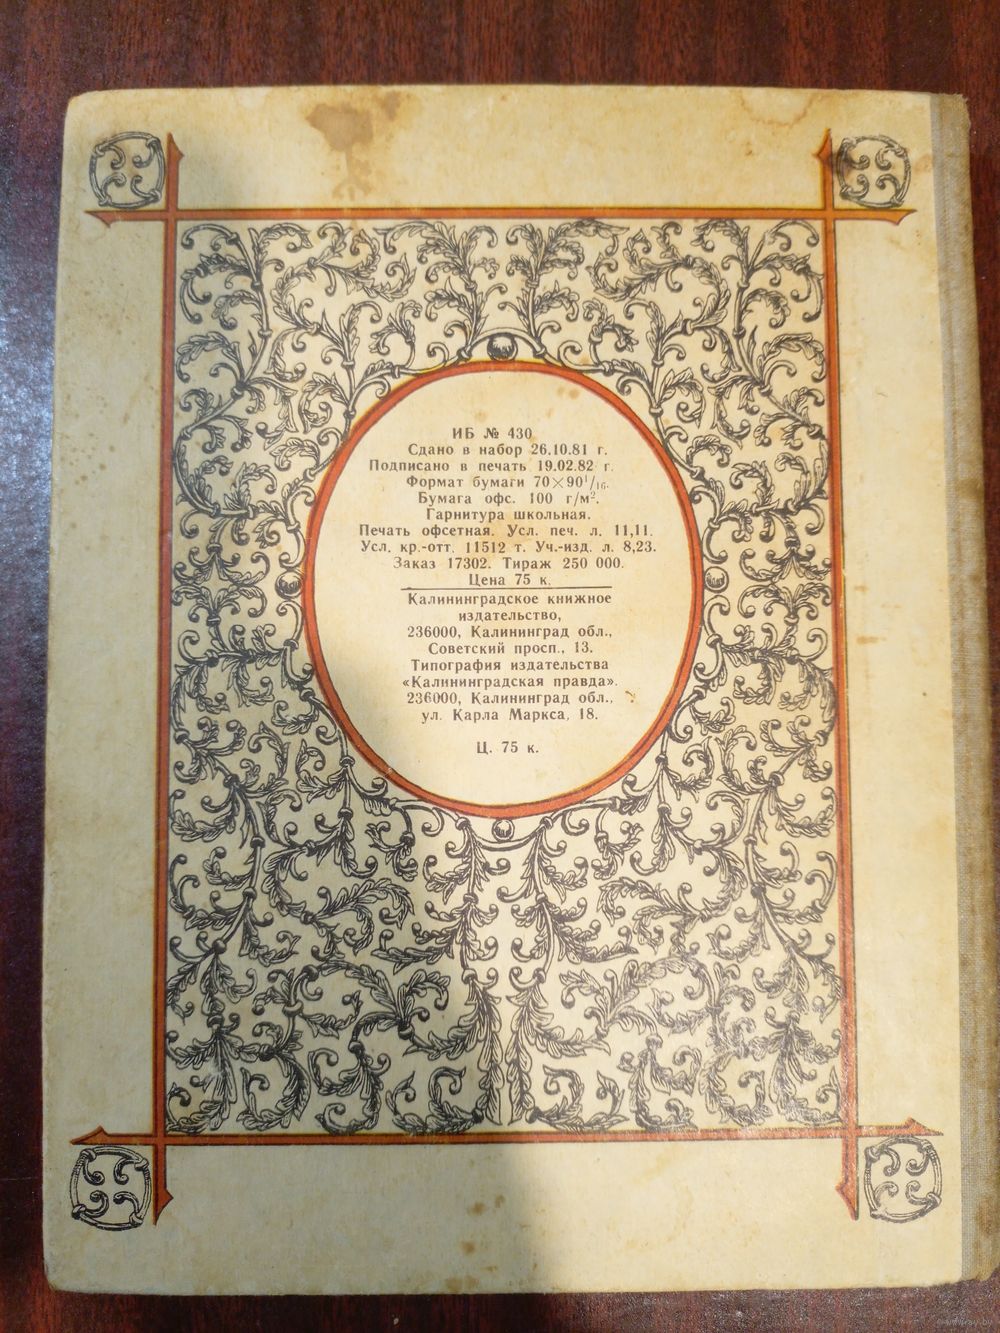 ИБ № 430
Сдано в набор 26.10.81 г.
Подписано в печать 19.02.82 г.
Формат бумаги 70×90¹/₁₆.
Бумага офс. 100 г/м².
Гарнитура школьная.
Печать офсетная. Усл. печ. л. 11,11.
Усл. кр.-отт. 11512 т. Уч.-изд. л. 8,23.
Заказ 17302. Тираж 250 000.
Цена 75 к.
Калининградское книжное
издательство,
236000, Калининград обл.,
Советский просп., 13.
Типография издательства
«Калининградская правда».
236000, Калининград обл.,
ул. Карла Маркса, 18.
Ц. 75 к.